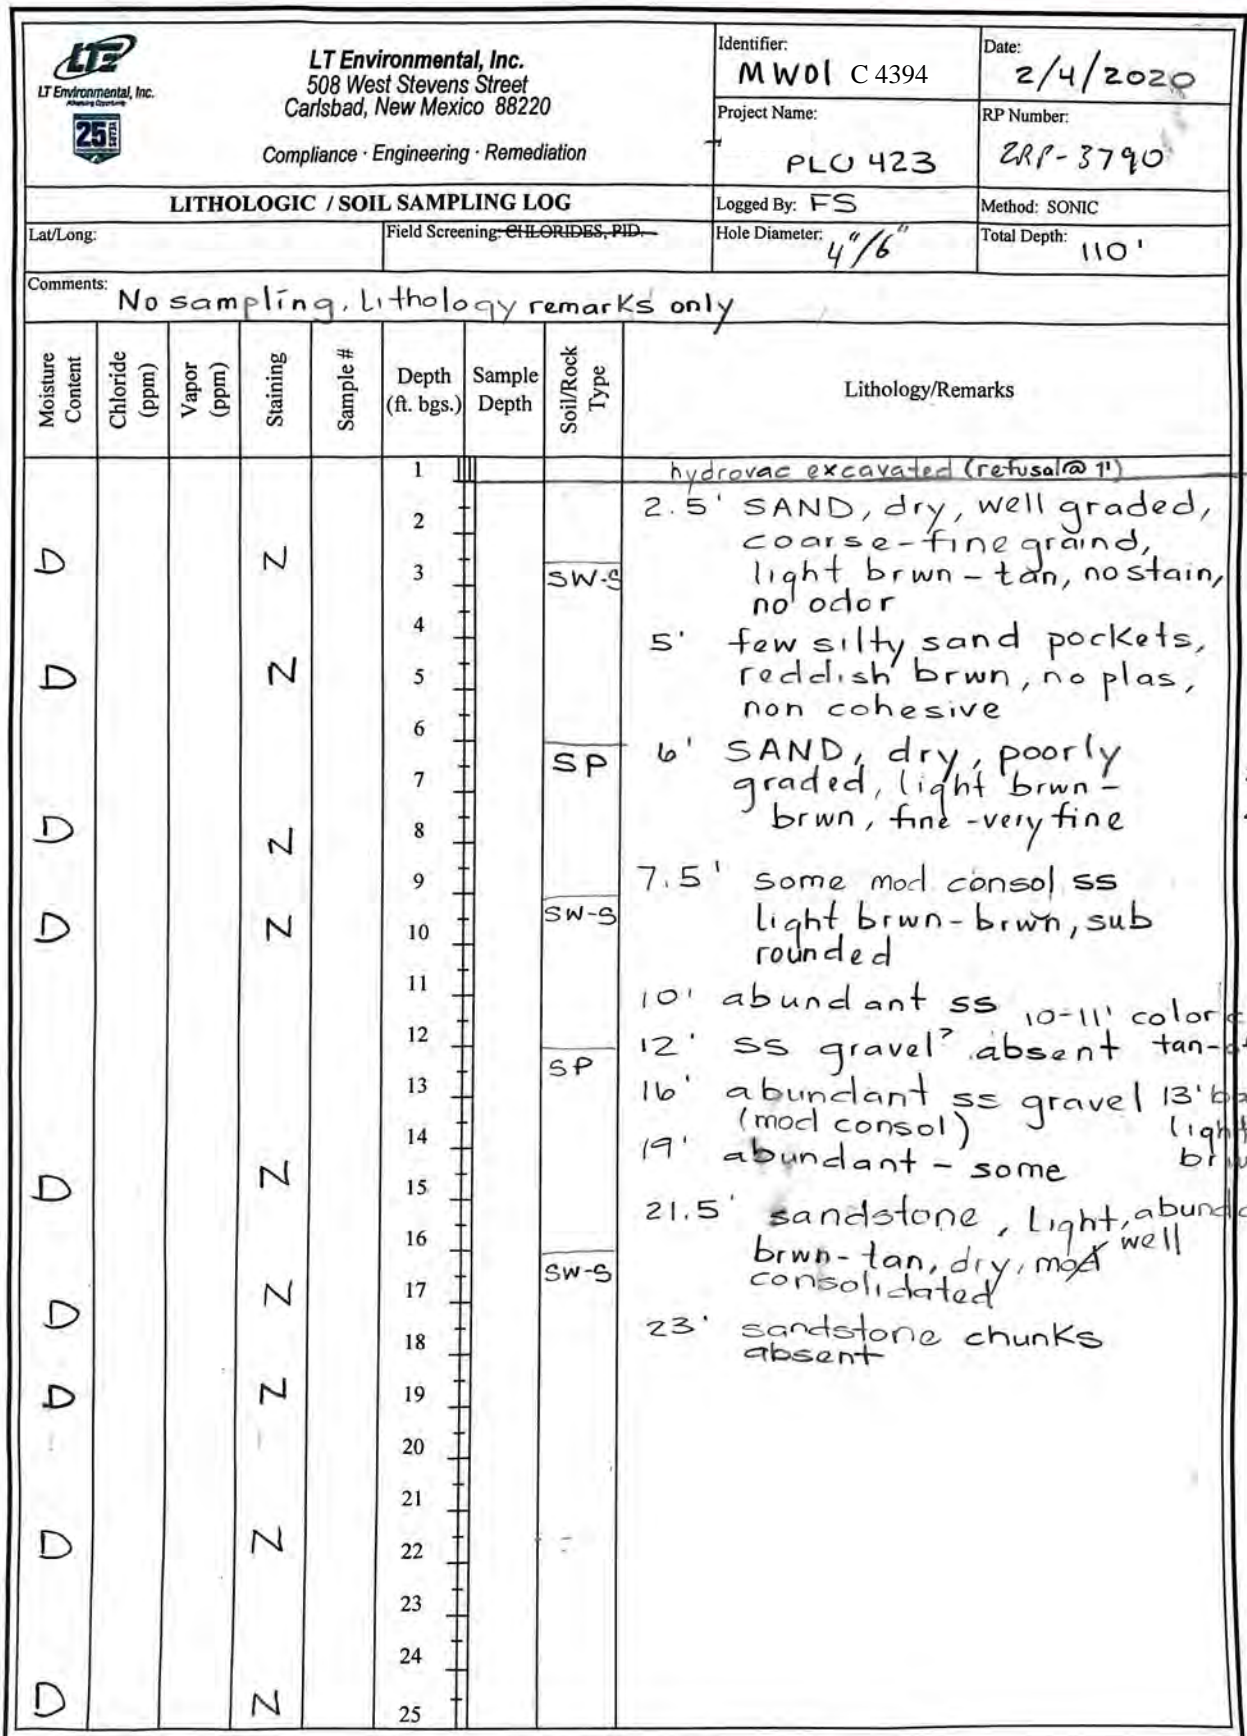 LTE
LT Environmental, Inc.
Advancing Opportunity
25 YEARS
LT Environmental, Inc.
508 West Stevens Street
Carlsbad, New Mexico 88220
Compliance · Engineering · Remediation
Identifier:
MW01 C 4394
Date:
2/4/2020
Project Name:
PLU 423
RP Number:
2RP-3790
LITHOLOGIC / SOIL SAMPLING LOG
Logged By: FS
Method: SONIC
Lat/Long:
Field Screening: CHLORIDES, PID.
Hole Diameter: 4"/6"
Total Depth: 110'
Comments: No sampling, Lithology remarks only
Moisture Content
Chloride (ppm)
Vapor (ppm)
Staining
Sample #
Depth (ft. bgs.)
Sample Depth
Soil/Rock Type
Lithology/Remarks
1 hydrovac excavated (refusal@ 1')
2 2.5' SAND, dry, well graded,
coarse-fine graind,
D N 3 SW-S light brwn-tan, no stain,
no odor
4 5' few silty sand pockets,
D N 5 reddish brwn, no plas,
non cohesive
6 SP 6' SAND, dry, poorly
7 graded, light brwn-
D N 8 brwn, fine-very fine
9 7.5' some mod consol ss
D N 10 SW-S light brwn-brwn, sub
rounded
11 10' abundant ss 10-11' color
12 12' ss gravel? absent tan-
13 SP 16' abundant ss gravel 13'
14 (mod consol) light
19' abundant - some
D N 15
21.5' sandstone, Light, abund
16 brwn-tan, dry, mod well
D N 17 SW-S consolidated
18 23' sandstone chunks
absent
D N 19
20
21
D N 22
23
24
D N 25